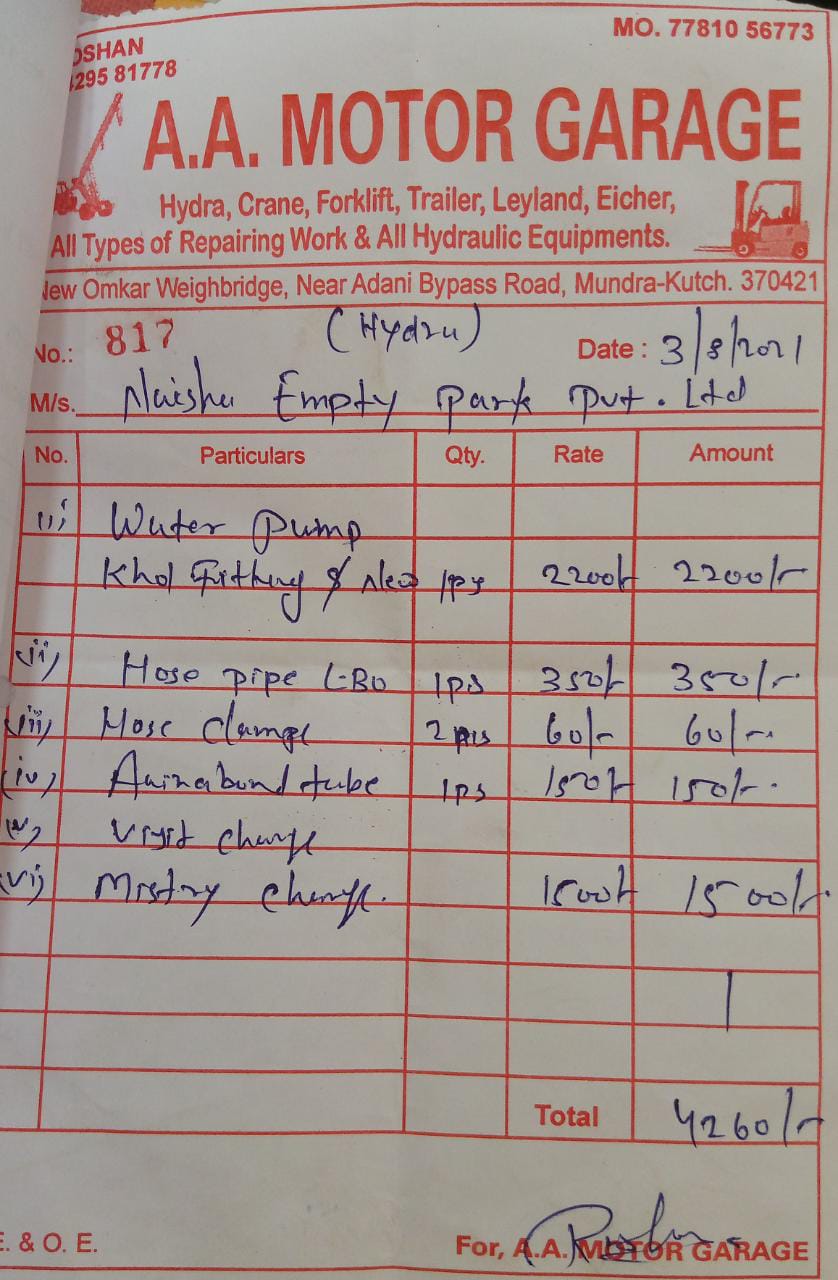 OSHAN
MO. 77810 56773
295 81778
A.A. MOTOR GARAGE
Hydra, Crane, Forklift, Trailer, Leyland, Eicher,
All Types of Repairing Work & All Hydraulic Equipments.
New Omkar Weighbridge, Near Adani Bypass Road, Mundra-Kutch. 370421
No.: 817 (Hydra) Date : 3/8/2021
M/s. Naisha Empty Park Pvt. Ltd
No. Particulars Qty. Rate Amount
i) Water Pump
Khol Fitting & 1ps 2200/- 2200/-
ii) Hose pipe 1ps 350/- 350/-
iii) Hose clamp 2 60/- 60/-
iv) tube 1ps 150/- 150/-
v) Visit charge
vi) Mistry charge. 1500/- 1500/-
Total 4260/-
E. & O. E. For, A.A. MOTOR GARAGE